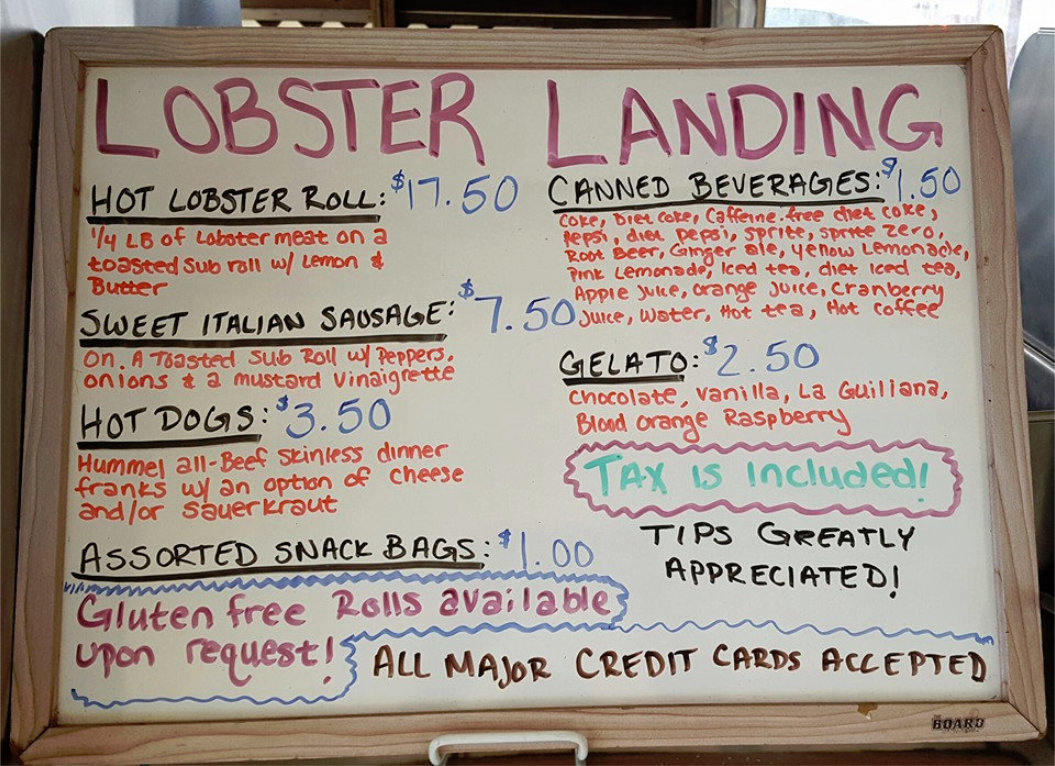 LOBSTER LANDING
HOT LOBSTER ROLL: $17.50
1/4 LB of Lobster meat on a
toasted sub roll w/ Lemon &
Butter
SWEET ITALIAN SAUSAGE: $7.50
On. A Toasted Sub Roll w/ Peppers,
onions & a mustard vinaigrette
HOT DOGS: $3.50
Hummel all-Beef skinless dinner
franks w/ an option of cheese
and/or sauerkraut
ASSORTED SNACK BAGS: $1.00
Gluten free Rolls available
upon request!
CANNED BEVERAGES: $1.50
Coke, Diet Coke, Caffeine-free diet coke,
Pepsi, diet pepsi, sprite, sprite zero,
Root Beer, Ginger ale, yellow Lemonade,
Pink Lemonade, Iced tea, diet iced tea,
Apple Juice, orange juice, Cranberry
Juice, Water, Hot tea, Hot coffee
GELATO: $2.50
Chocolate, vanilla, La Guiliana,
Blood orange Raspberry
TAX is included!
TIPS GREATLY
APPRECIATED!
ALL MAJOR CREDIT CARDS ACCEPTED
BOARD